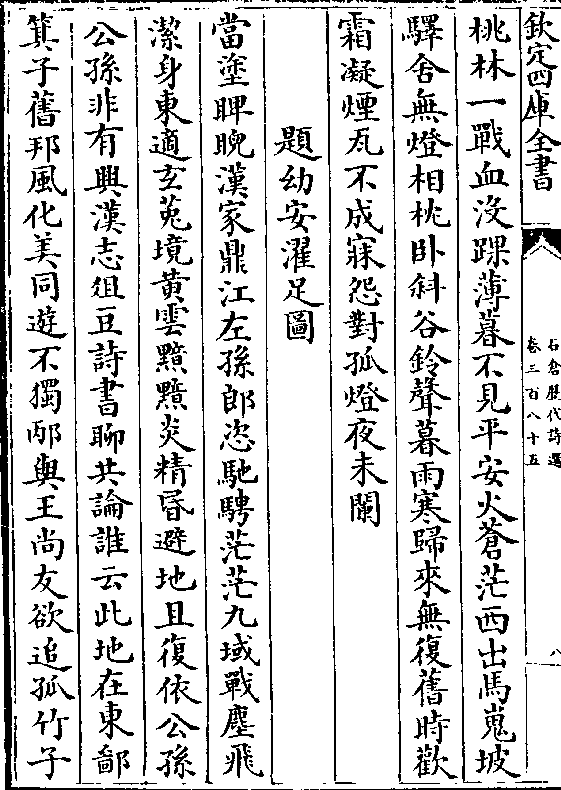 欽定四庫全書
石倉歷代詩選
卷三百八十五
八
桃林一戰血沒踝薄暮不見平安火蒼茫西出馬嵬坡
驛舍無燈相枕卧斜谷鈴聲暮雨寒歸來無復舊時歡
霜凝煙瓦不成寐怨對孤燈夜未闌
題幼安濯足圖
當塗睥睨漢家鼎江左孫郎恣馳騁茫茫九域戰塵飛
潔身東適玄菟境黄雲黯黯炎精昏避地且復依公孫
公孫非有興漢志俎豆詩書聊共論誰云此地在東鄙
箕子舊邦風化美同遊不獨邴與王尚友欲追孤竹子